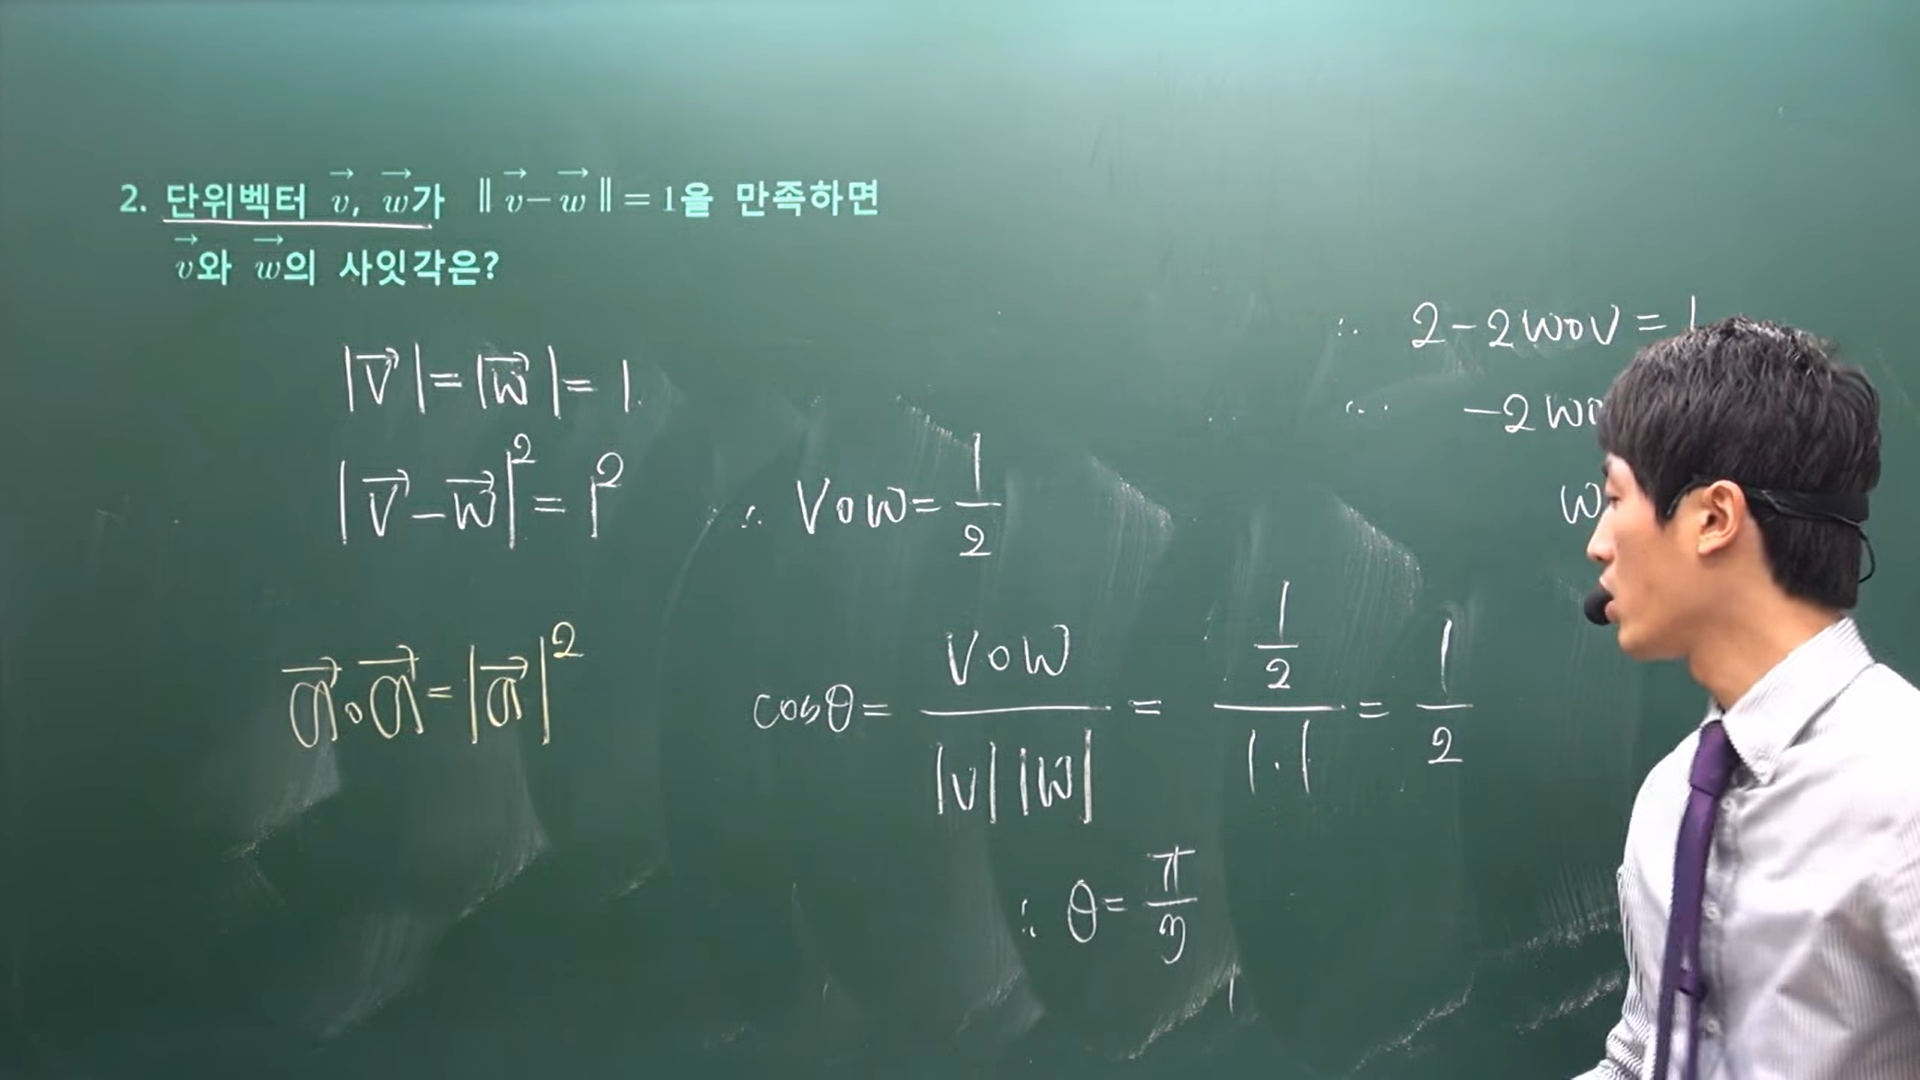 2. 단위벡터 v⃗, w⃗가 ‖v⃗−w⃗‖=1을 만족하면
v⃗와 w⃗의 사잇각은?
|v⃗|=|w⃗|=1.
|v⃗−w⃗|²=1²
a⃗∘a⃗=|a⃗|²
∴ v∘w=1/2
cosθ= v∘w / |v||w| = 1/2 / 1·1 = 1/2
∴ θ=π/3
∴ 2−2w∘v=1
∴ −2w∘
w